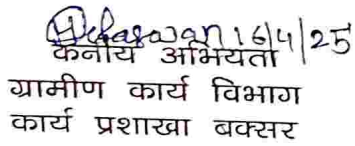 16/4/25
कनीय अभियंता
ग्रामीण कार्य विभाग
कार्य प्रशाखा बक्सर